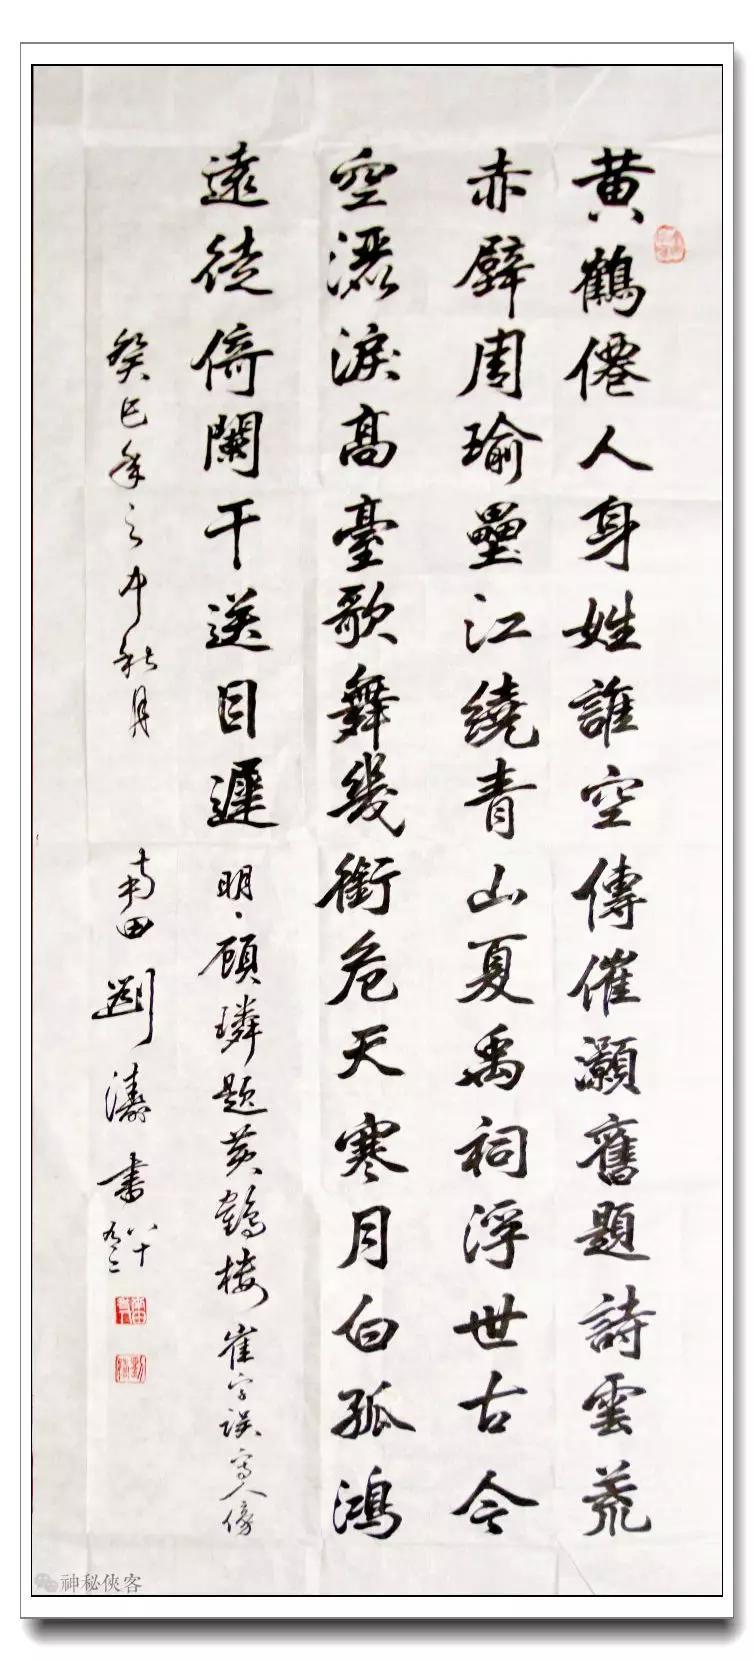 黄鶴僊人身姓誰空傳催灝舊題詩雲荒
赤壁周瑜壘江繞青山夏禹祠浮世古今
空灑淚高臺歌舞幾銜卮天寒月白孤鴻
遠徒倚闌干送目遲
明、顧璘题黄鶴楼
崔字误寫人傍
癸巳年之中秋月
南田劉濤书
八十
神秘俠客